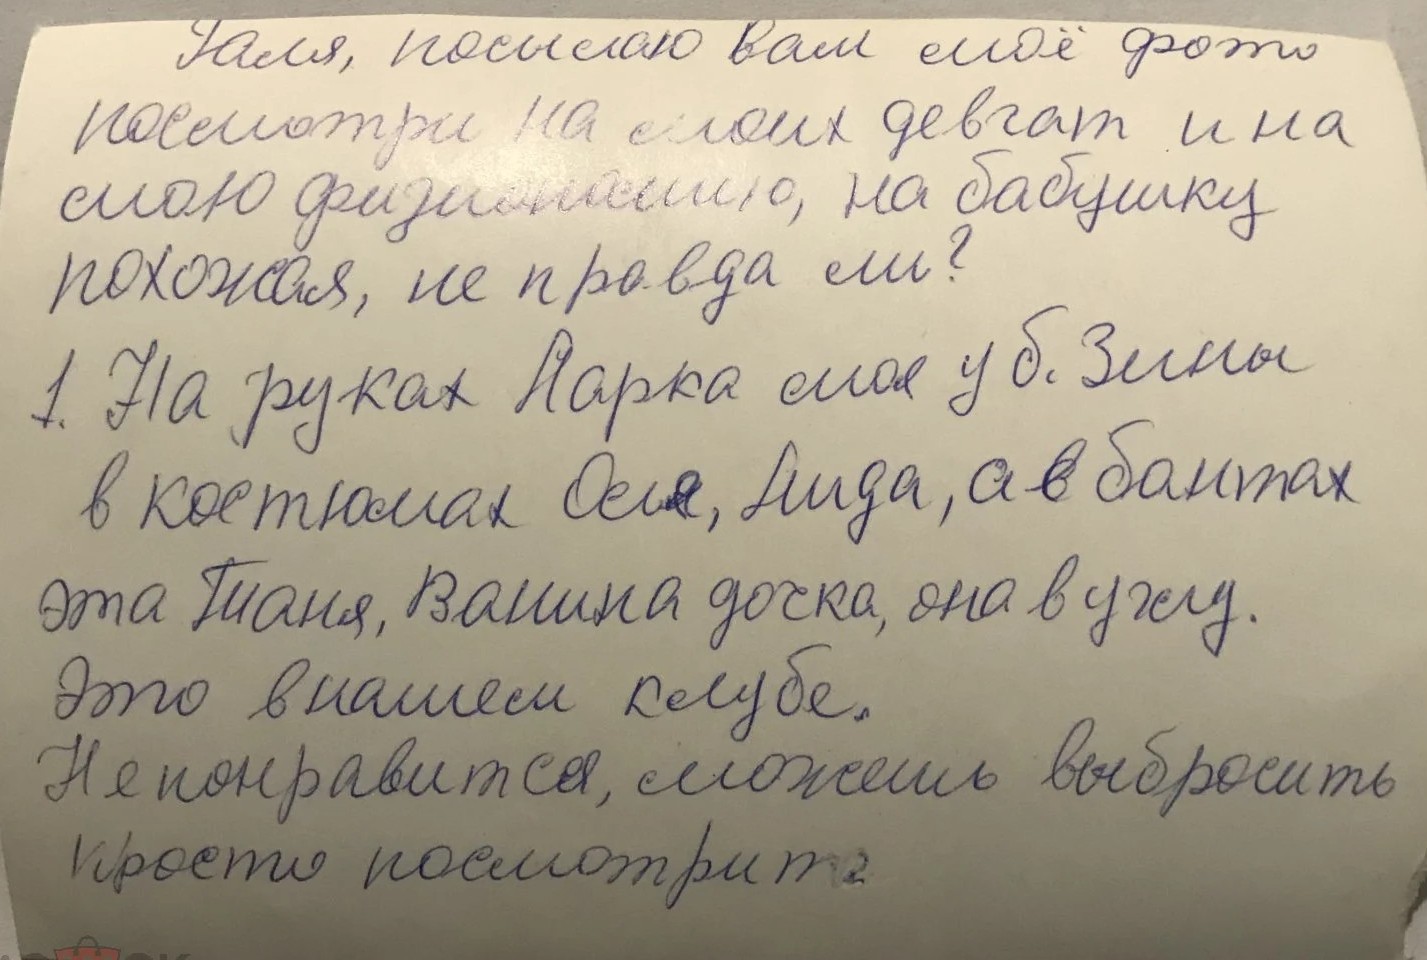 Галя, посылаю вам моё фото
посмотри на моих девчат и на
мою физиономию, на бабушку
похожая, не правда ли?
1. На руках Ларка моя у б. Зины
в костюмах Оля, Лида, а в бантах
эта Таня, Ванина дочка, она в углу.
Это в нашем клубе.
Не понравится, можешь выбросить
просто посмотрите